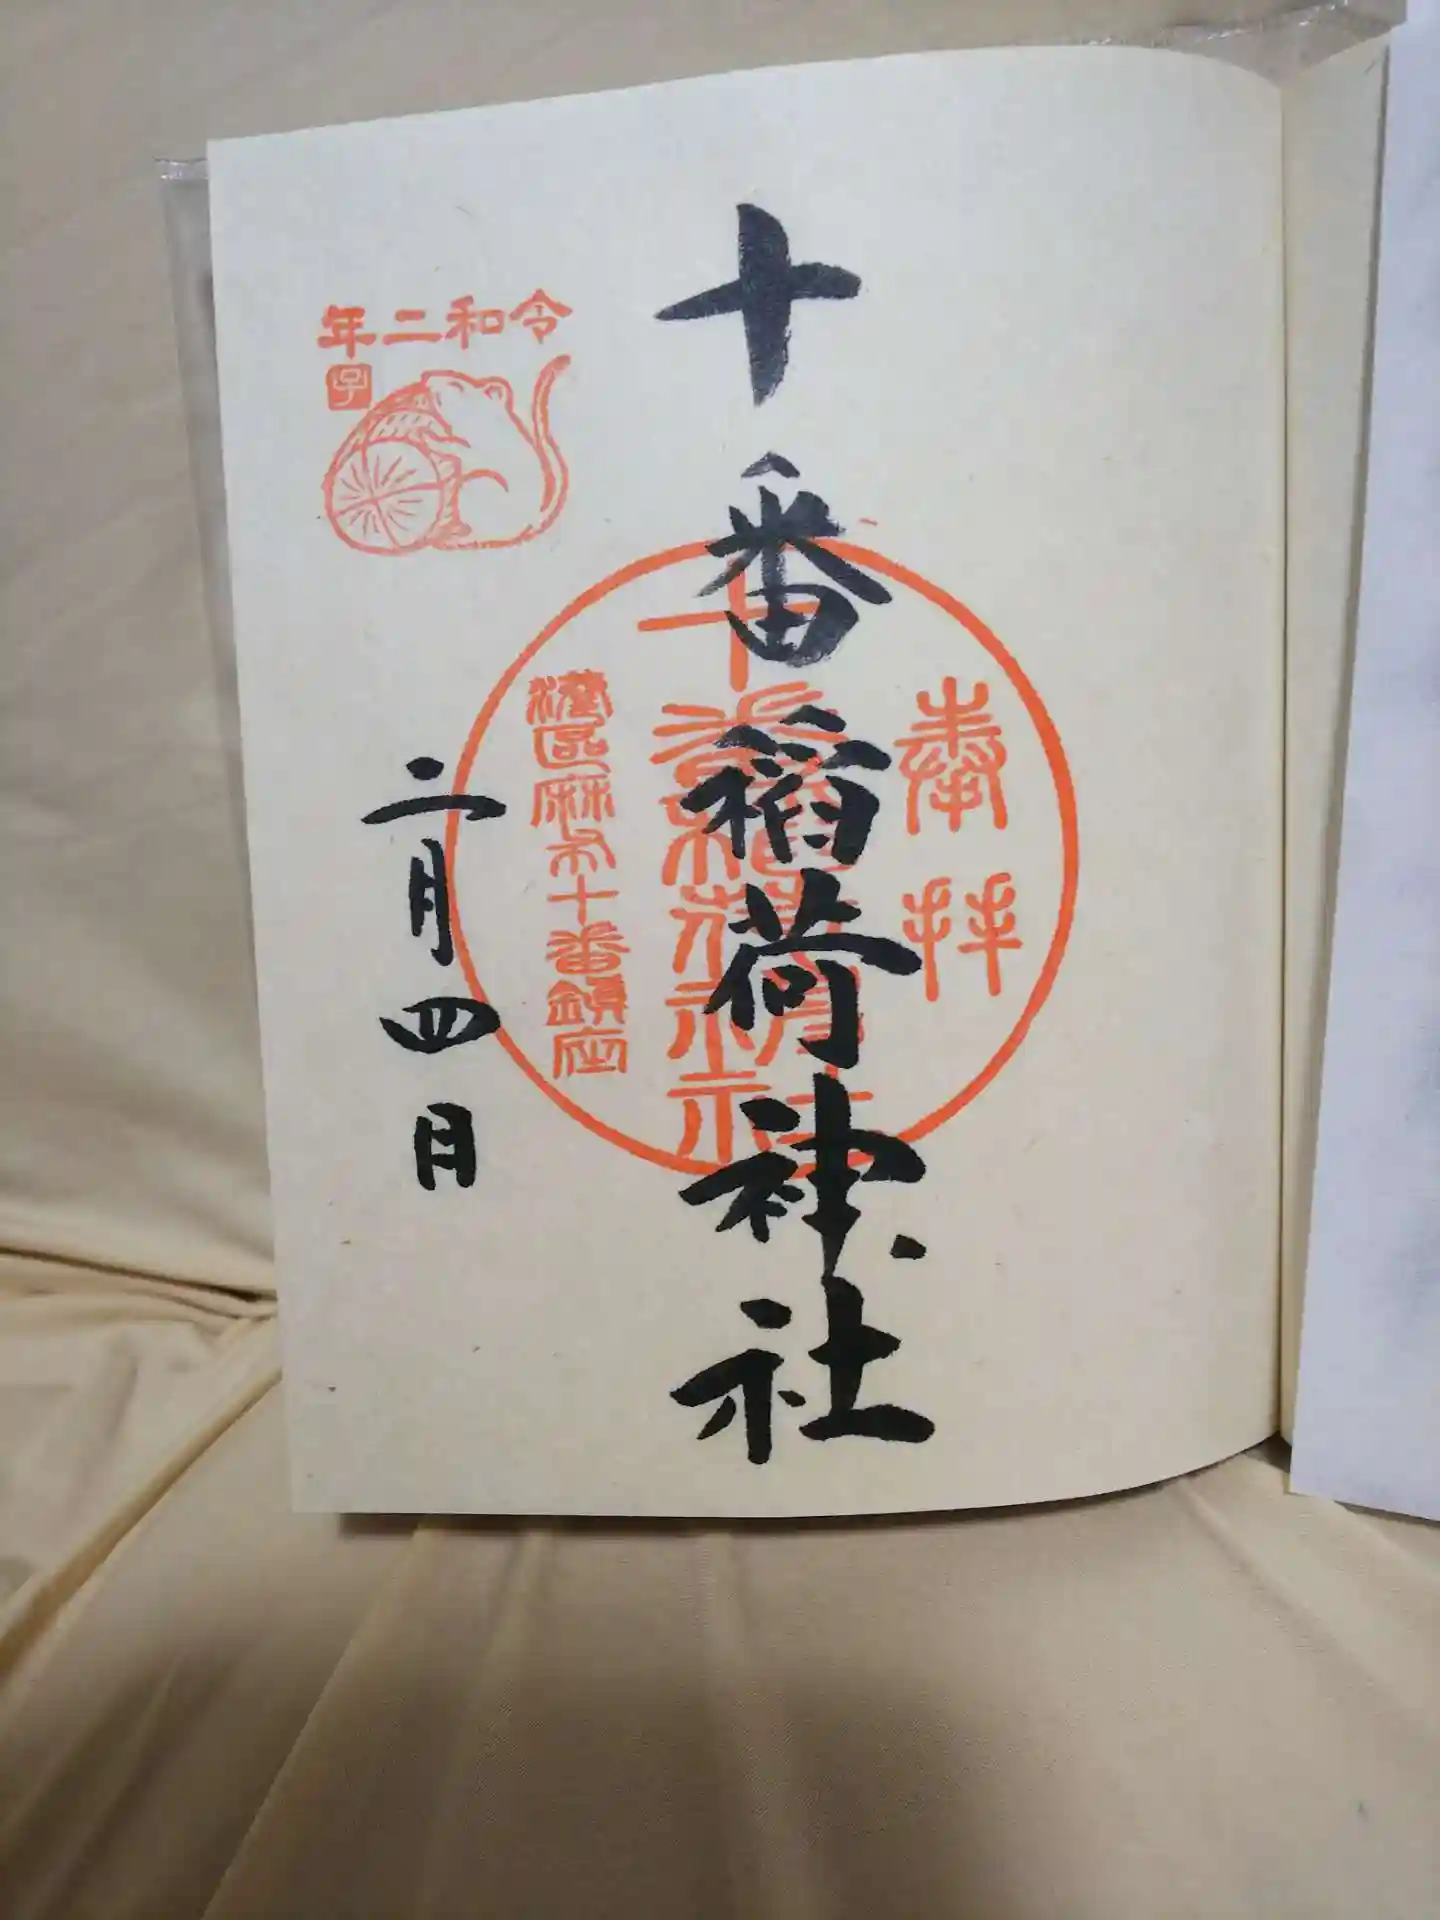 奉拝
十番稲荷神社
十番稲荷神社
港区麻布十番鎮座
令和二年
子
二月四日